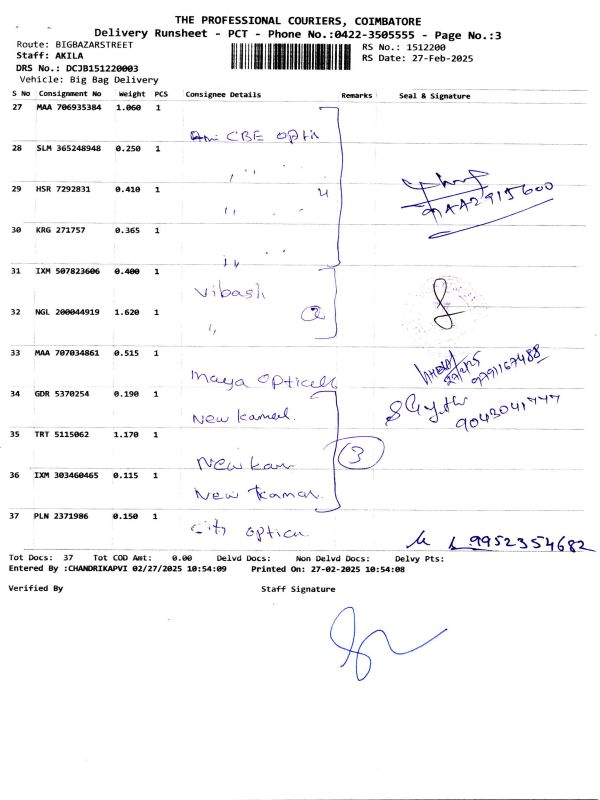 THE PROFESSIONAL COURIERS, COIMBATORE
Delivery Runsheet - PCT - Phone No.:0422-3505555 - Page No.:3
Route: BIGBAZARSTREET
RS No.: 1512200
Staff: AKILA
RS Date: 27-Feb-2025
DRS No.: DCJB151220003
Vehicle: Big Bag Delivery
S No Consignment No Weight PCS Consignee Details Remarks Seal & Signature
27 MAA 706935384 1.060 1
CBE opti
28 SLM 365248948 0.250 1
,, ,,
29 HSR 7292831 0.410 1
4
,,
30 KRG 271757 0.365 1
31 IXM 507823606 0.400 1
Vibash
32 NGL 200044919 1.620 1
2
,,
33 MAA 707034861 0.515 1
27/2/25
9791167488
Maya opticals
34 GDR 5370254 0.190 1
New Kamal.
35 TRT 5115062 1.170 1
New Kam
3
36 IXM 303460465 0.115 1
New Kamal.
37 PLN 2371986 0.150 1
City optica
9952354682
Tot Docs: 37 Tot COD Amt: 0.00 Delvd Docs: Non Delvd Docs: Delvy Pts:
Entered By :CHANDRIKAPVI 02/27/2025 10:54:09 Printed On: 27-02-2025 10:54:08
Verified By Staff Signature